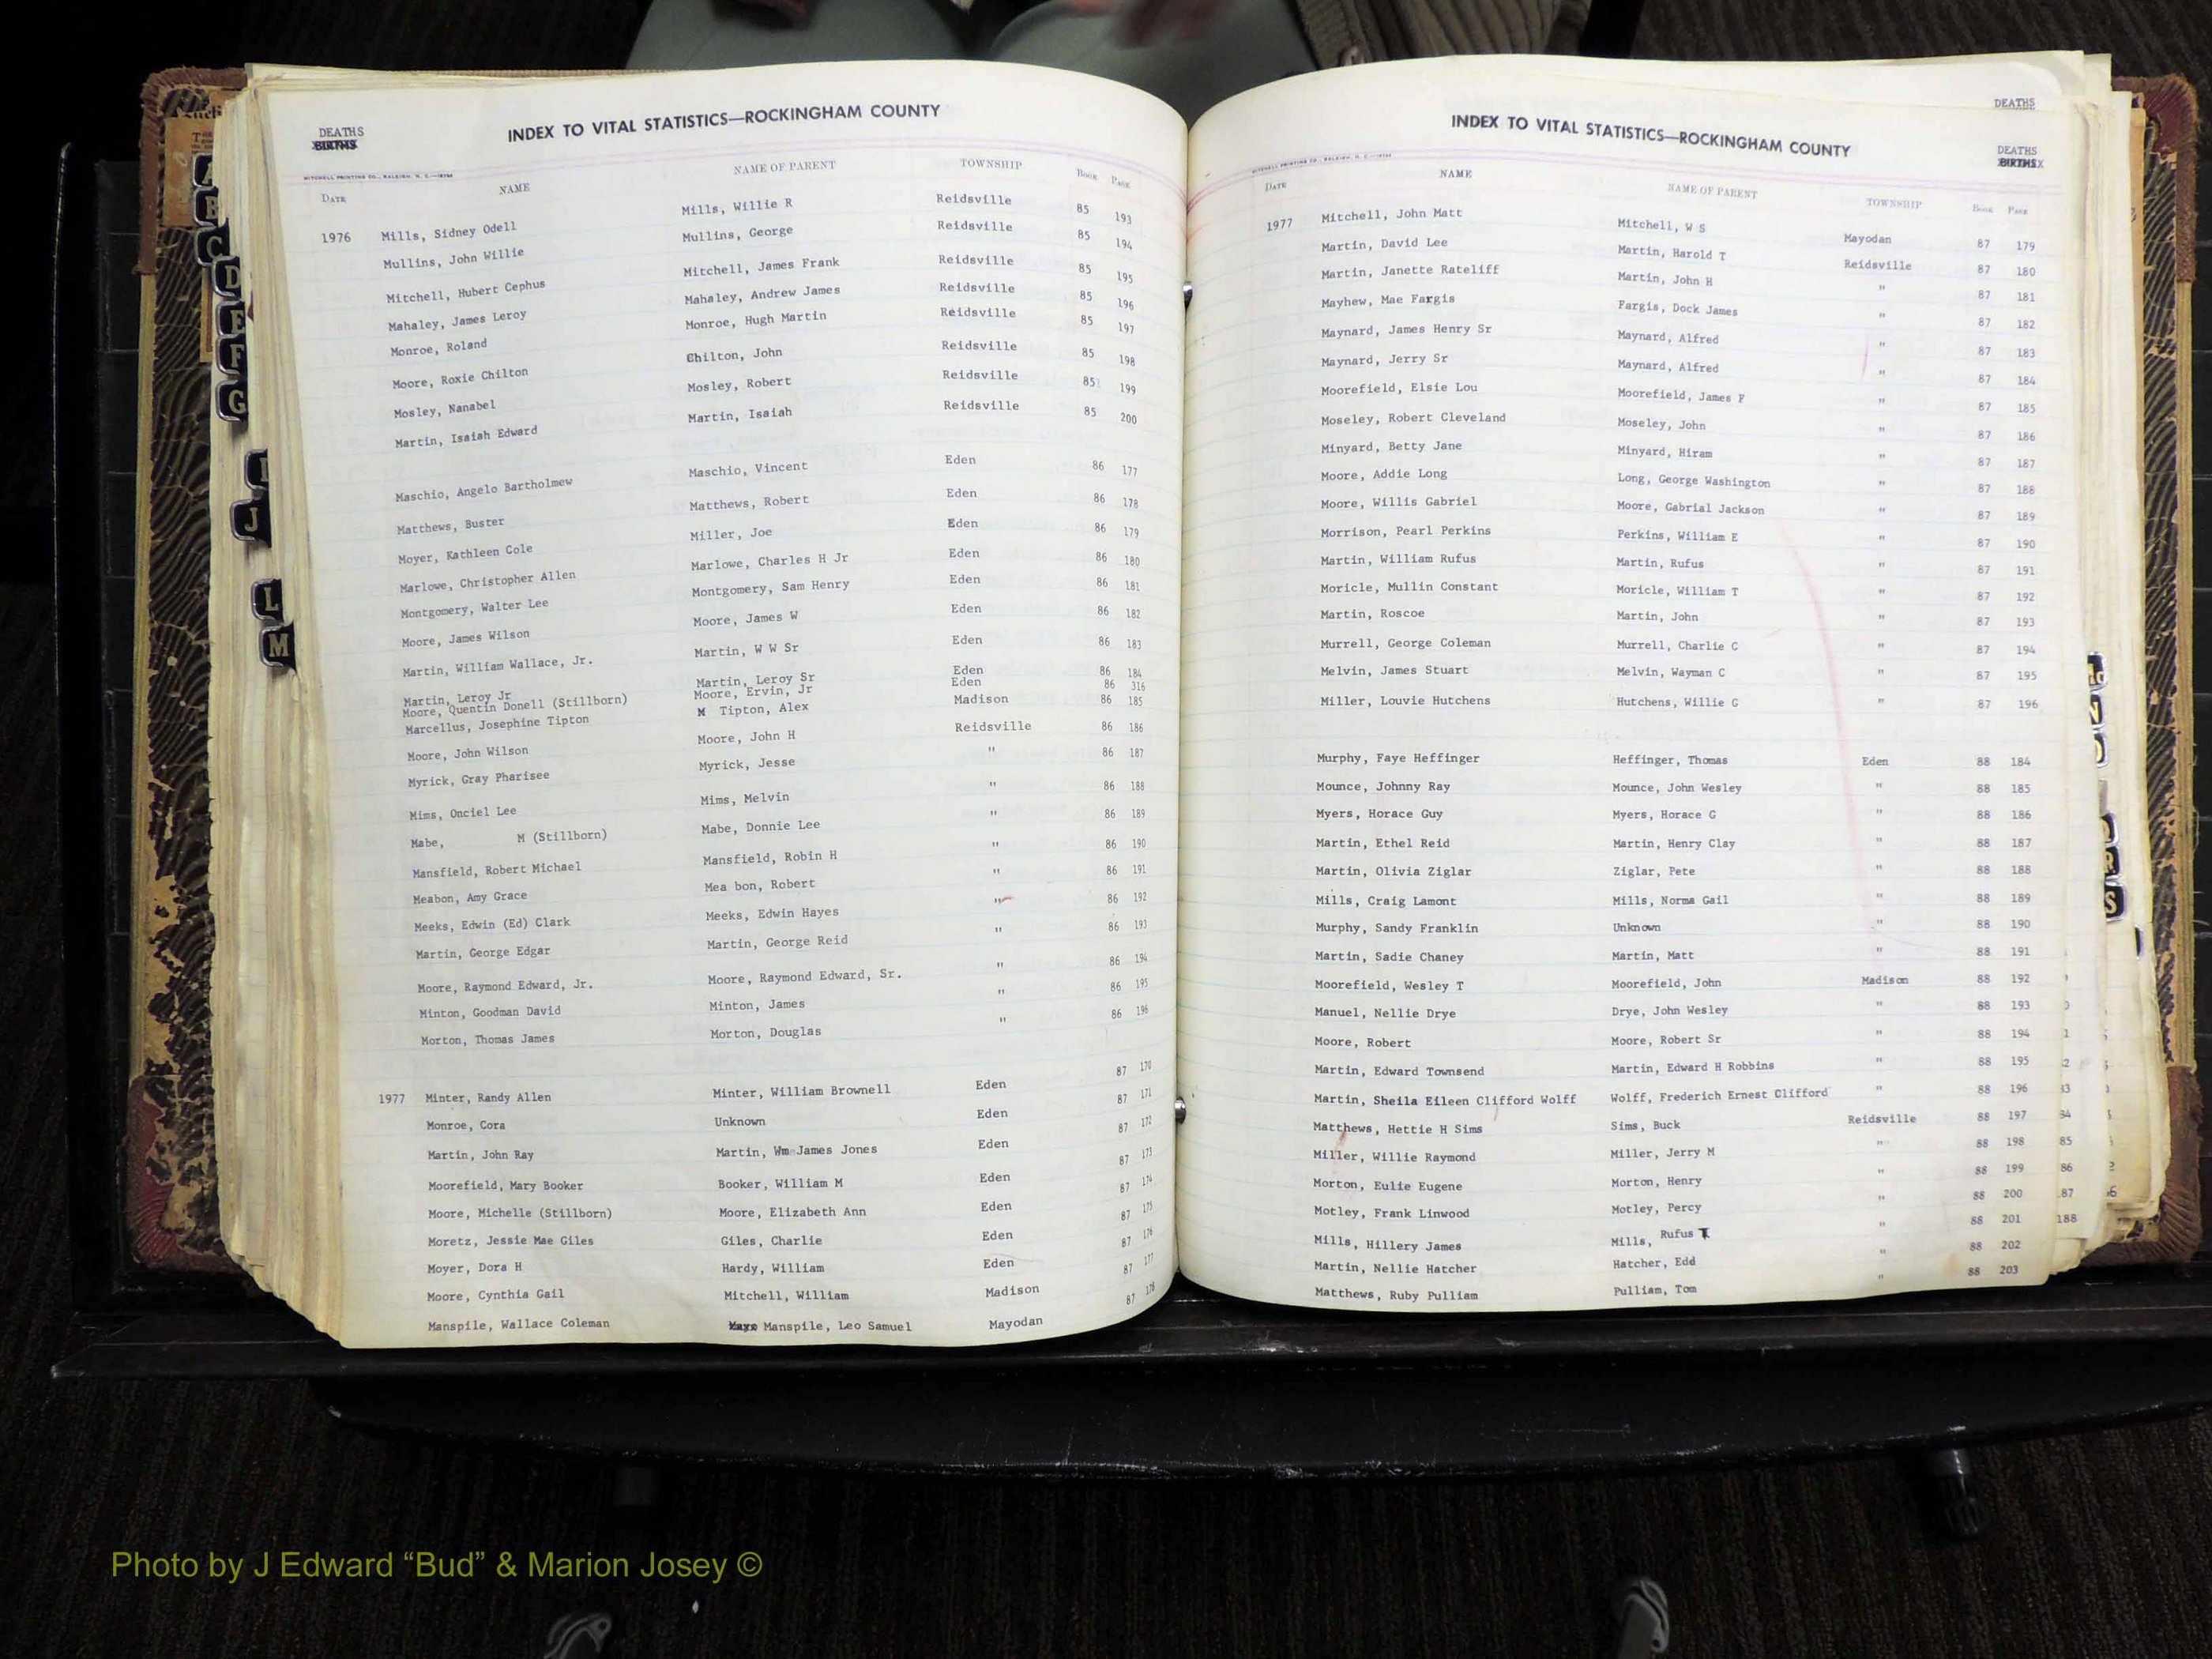 DEATHS
BIRTHS
INDEX TO VITAL STATISTICS—ROCKINGHAM COUNTY
MITCHELL PRINTING CO., RALEIGH, N. C.
DATE NAME NAME OF PARENT TOWNSHIP Book Page
1976 Mills, Sidney Odell Mills, Willie R Reidsville 85 193
Mullins, John Willie Mullins, George Reidsville 85 194
Mitchell, Hubert Cephus Mitchell, James Frank Reidsville 85 195
Mahaley, James Leroy Mahaley, Andrew James Reidsville 85 196
Monroe, Roland Monroe, Hugh Martin Reidsville 85 197
Moore, Roxie Chilton Chilton, John Reidsville 85 198
Mosley, Nanabel Mosley, Robert Reidsville 85 199
Martin, Isaiah Edward Martin, Isaiah Reidsville 85 200
Maschio, Angelo Bartholmew Maschio, Vincent Eden 86 177
Matthews, Buster Matthews, Robert Eden 86 178
Moyer, Kathleen Cole Miller, Joe Eden 86 179
Marlowe, Christopher Allen Marlowe, Charles H Jr Eden 86 180
Montgomery, Walter Lee Montgomery, Sam Henry Eden 86 181
Moore, James Wilson Moore, James W Eden 86 182
Martin, William Wallace, Jr. Martin, W W Sr Eden 86 183
Martin, Leroy Jr Martin, Leroy Sr Eden 86 184
Moore, Quentin Donell (Stillborn) Moore, Ervin, Jr Eden 86 316
Marcellus, Josephine Tipton M Tipton, Alex Madison 86 185
Moore, John Wilson Moore, John H Reidsville 86 186
Myrick, Gray Pharisee Myrick, Jesse " 86 187
Mims, Onciel Lee Mims, Melvin " 86 188
Mabe, M (Stillborn) Mabe, Donnie Lee " 86 189
Mansfield, Robert Michael Mansfield, Robin H " 86 190
Meabon, Amy Grace Mea bon, Robert " 86 191
Meeks, Edwin (Ed) Clark Meeks, Edwin Hayes " 86 192
Martin, George Edgar Martin, George Reid " 86 193
Moore, Raymond Edward, Jr. Moore, Raymond Edward, Sr. " 86 194
Minton, Goodman David Minton, James " 86 195
Morton, Thomas James Morton, Douglas " 86 196
1977 Minter, Randy Allen Minter, William Brownell Eden 87 170
Monroe, Cora Unknown Eden 87 171
Martin, John Ray Martin, Wm James Jones Eden 87 172
Moorefield, Mary Booker Booker, William M Eden 87 173
Moore, Michelle (Stillborn) Moore, Elizabeth Ann Eden 87 174
Moretz, Jessie Mae Giles Giles, Charlie Eden 87 175
Moyer, Dora H Hardy, William Eden 87 176
Moore, Cynthia Gail Mitchell, William Madison 87 177
Manspile, Wallace Coleman Manspile, Leo Samuel Mayodan 87 178
DEATHS
INDEX TO VITAL STATISTICS—ROCKINGHAM COUNTY
DEATHS
BIRTHS
MITCHELL PRINTING CO., RALEIGH, N. C.
DATE NAME NAME OF PARENT TOWNSHIP Book Page
1977 Mitchell, John Matt Mitchell, W S Mayodan 87 179
Martin, David Lee Martin, Harold T Reidsville 87 180
Martin, Janette Rateliff Martin, John H " 87 181
Mayhew, Mae Fargis Fargis, Dock James " 87 182
Maynard, James Henry Sr Maynard, Alfred " 87 183
Maynard, Jerry Sr Maynard, Alfred " 87 184
Moorefield, Elsie Lou Moorefield, James F " 87 185
Moseley, Robert Cleveland Moseley, John " 87 186
Minyard, Betty Jane Minyard, Hiram " 87 187
Moore, Addie Long Long, George Washington " 87 188
Moore, Willis Gabriel Moore, Gabrial Jackson " 87 189
Morrison, Pearl Perkins Perkins, William E " 87 190
Martin, William Rufus Martin, Rufus " 87 191
Moricle, Mullin Constant Moricle, William T " 87 192
Martin, Roscoe Martin, John " 87 193
Murrell, George Coleman Murrell, Charlie C " 87 194
Melvin, James Stuart Melvin, Wayman C " 87 195
Miller, Louvie Hutchens Hutchens, Willie G " 87 196
Murphy, Faye Heffinger Heffinger, Thomas Eden 88 184
Mounce, Johnny Ray Mounce, John Wesley " 88 185
Myers, Horace Guy Myers, Horace G " 88 186
Martin, Ethel Reid Martin, Henry Clay " 88 187
Martin, Olivia Ziglar Ziglar, Pete " 88 188
Mills, Craig Lamont Mills, Norma Gail " 88 189
Murphy, Sandy Franklin Unknown " 88 190
Martin, Sadie Chaney Martin, Matt " 88 191
Moorefield, Wesley T Moorefield, John Madison 88 192
Manuel, Nellie Drye Drye, John Wesley " 88 193
Moore, Robert Moore, Robert Sr " 88 194
Martin, Edward Townsend Martin, Edward H Robbins " 88 195
Martin, Sheila Eileen Clifford Wolff Wolff, Frederich Ernest Clifford " 88 196
Matthews, Hettie H Sims Sims, Buck Reidsville 88 197
Miller, Willie Raymond Miller, Jerry M " 88 198
Morton, Eulie Eugene Morton, Henry " 88 199
Motley, Frank Linwood Motley, Percy " 88 200
Mills, Hillery James Mills, Rufus T " 88 201
Martin, Nellie Hatcher Hatcher, Edd " 88 202
Matthews, Ruby Pulliam Pulliam, Tom " 88 203
85
86
187
188
B
C
D
E
F
G
I
J
L
M
N
R
S
Photo by J Edward “Bud” & Marion Josey ©